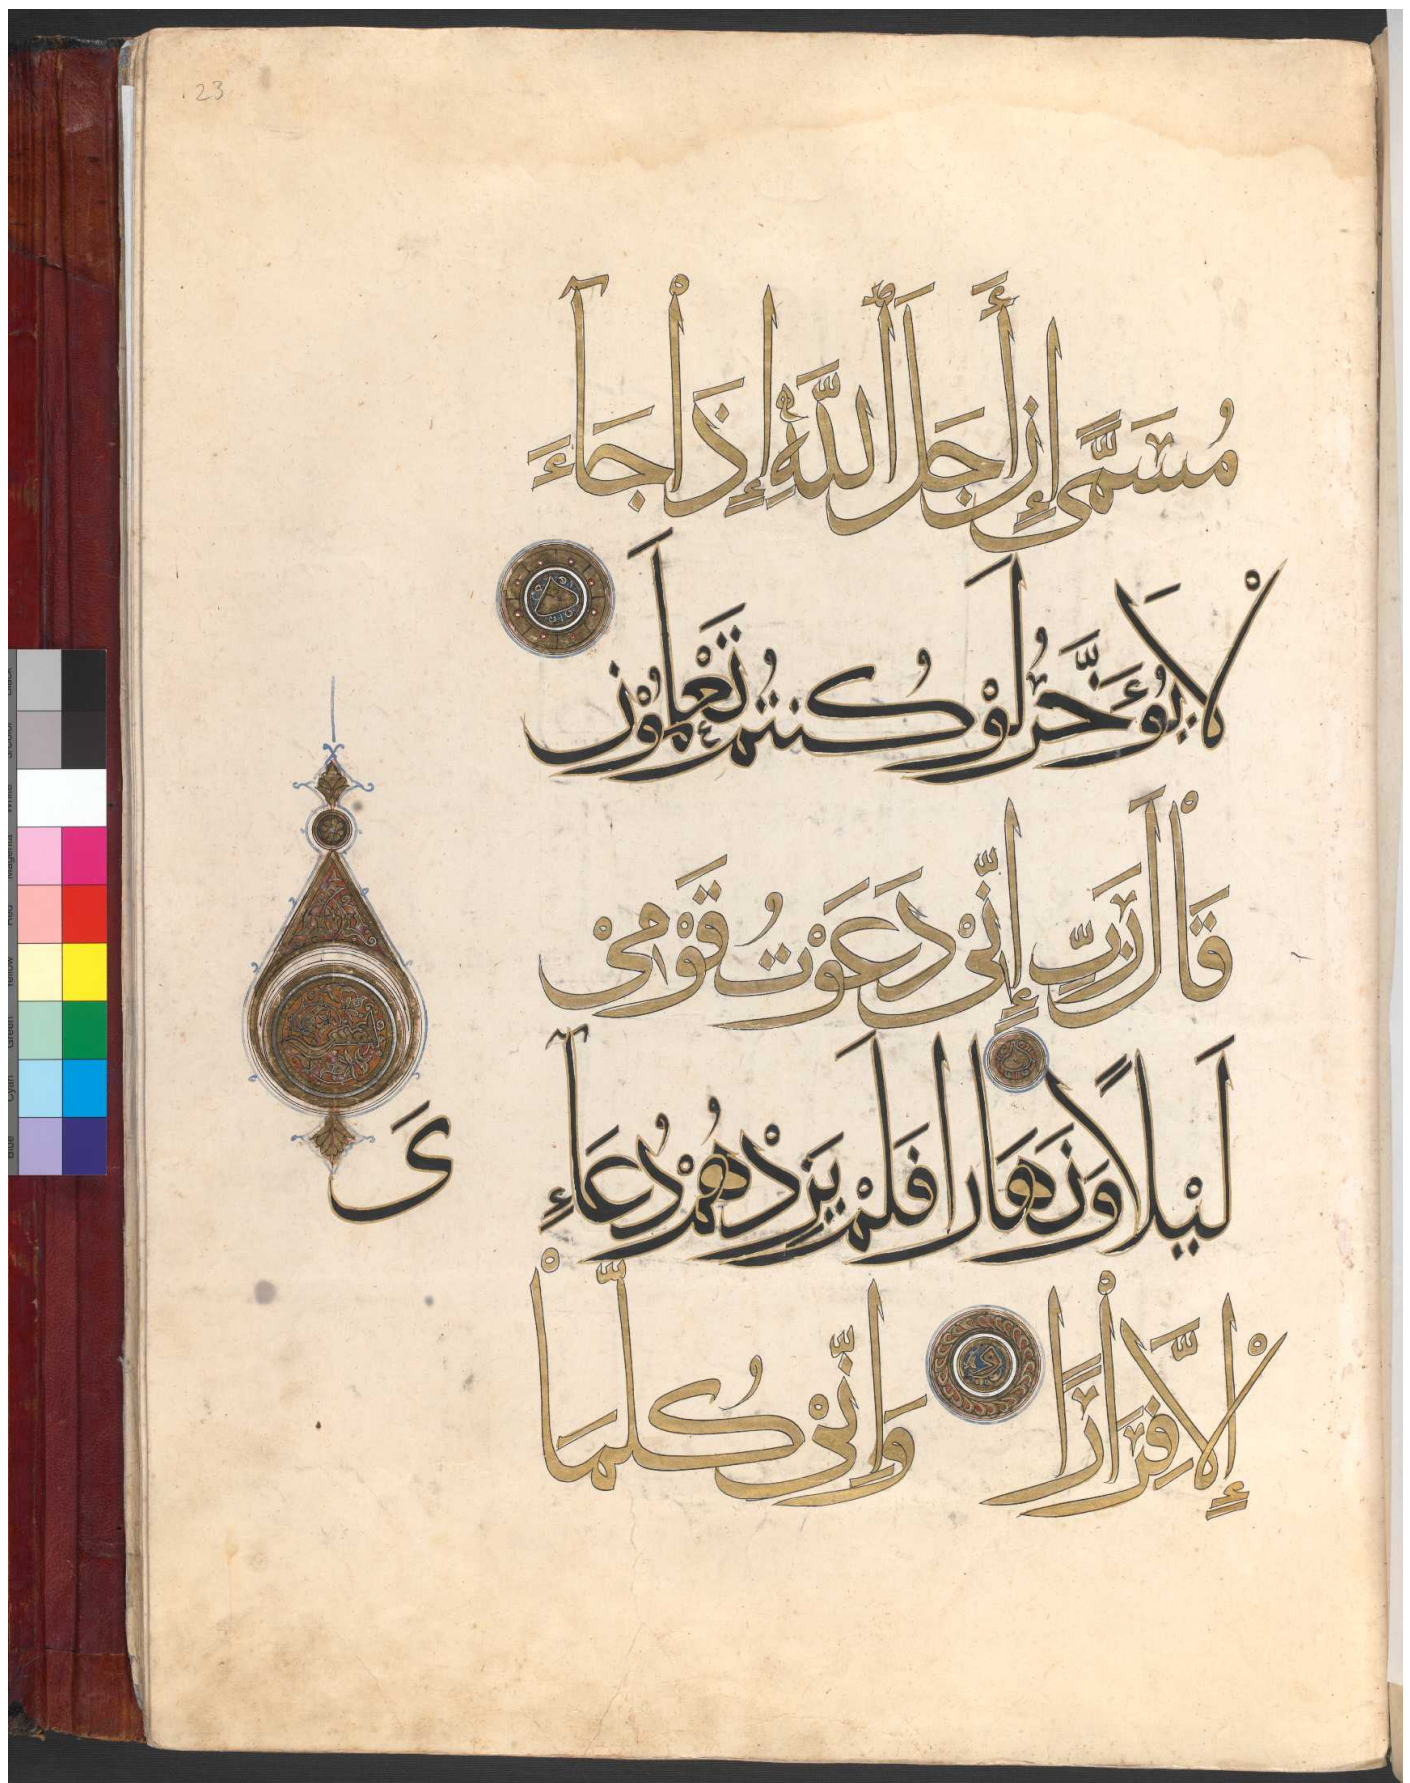 23
مُسَمًّى إِنَّ أَجَلَ اللَّهِ إِذَا جَآءَ
لَا يُؤَخَّرُ لَوْ كُنتُمْ تَعْلَمُونَ
قَالَ رَبِّ إِنِّيْ دَعَوْتُ قَوْمِيْ
لَيْلًا وَنَهَارًا فَلَمْ يَزِدْهُمْ دُعَآءِ
يَ
إِلَّا فِرَارًا وَإِنِّيْ كُلَّمَا